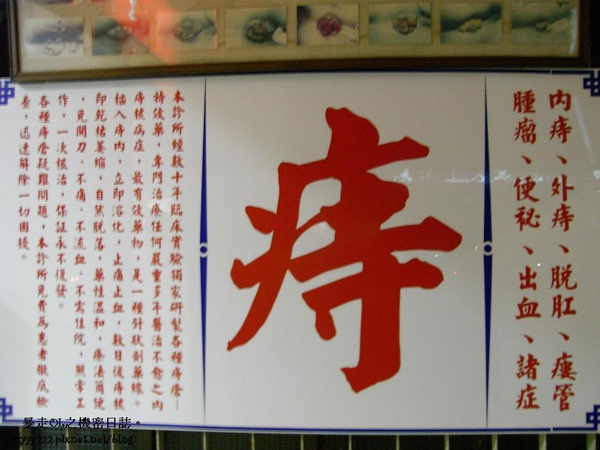 內痔、外痔、脫肛、瘻管
腫瘤、便秘、出血、諸症
痔
本診所經數十年臨床實驗獨家研製各種痔瘡一
特效藥,專門治療任何嚴重多年醫治不愈之內
痔核病症,最有效藥物,是一種針狀劑藥條。
插入痔肉,立即溶化,止痛止血,數日後痔核
即乾枯萎縮,自然脫落,藥性溫和,療法簡便
,免開刀.不痛.不流血.不需住院,照常工
作,一次根治,保証永不復發。
各種痔瘡疑難問題,本診所免費為患者徹底檢
查,迅速解除一切困擾。
暴走OL之機密日誌。
myyy222.pixnet.net/blog